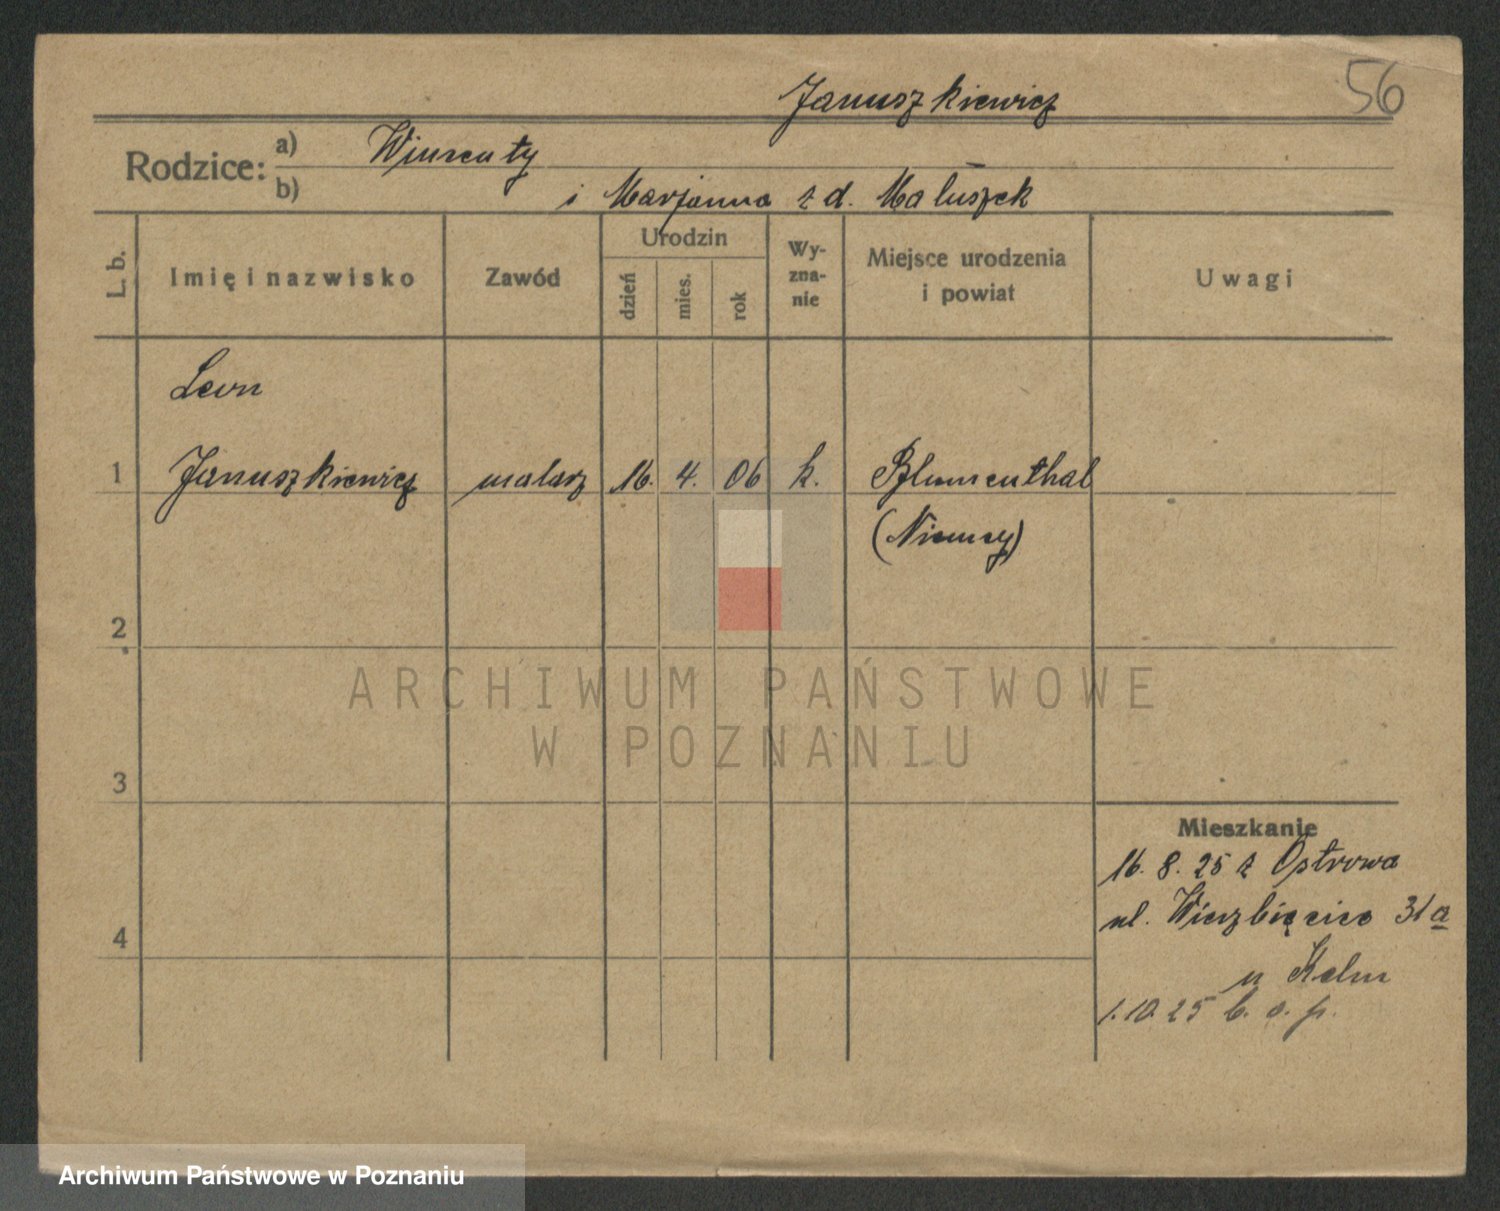 Januszkiewicz
56
Rodzice: a) Wincenty
b) i Marjanna z d. Maluszek
L. b.
Imię i nazwisko
Zawód
Urodzin
dzień
mies.
rok
Wy-
zna-
nie
Miejsce urodzenia
i powiat
Uwagi
Leon
1 Januszkiewicz malarz 16. 4. 06 k. Blumenthal
(Niemcy)
2
3
4
Mieszkanie
16. 8. 25 z Ostrowa
ul. Wierzbięcice 31a
u Kelm
1.10.25 b. o. p.
ARCHIWUM PAŃSTWOWE
W POZNANIU
Archiwum Państwowe w Poznaniu